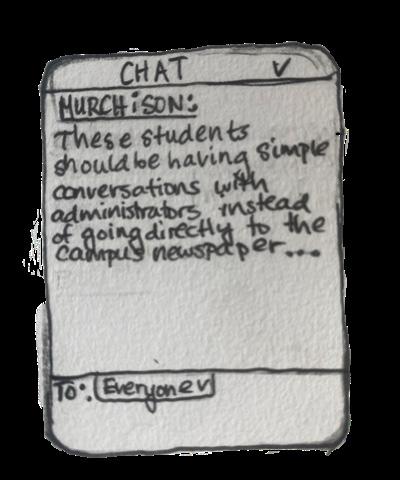 CHAT
MURCHiSON:
These students
should be having simple
conversations with
administrators instead
of going directly to the
campus newspaper...
To: Everyone